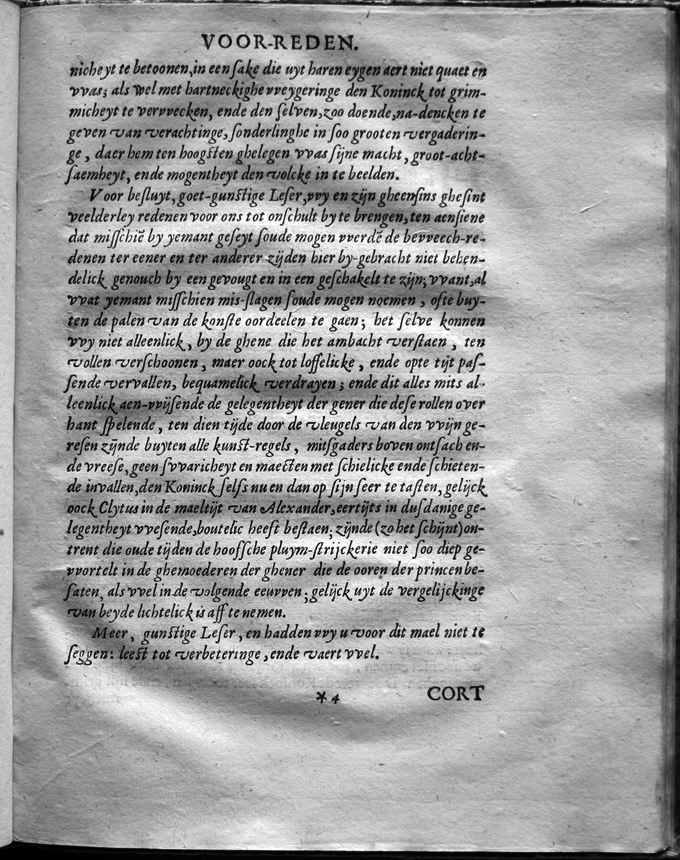 VOOR-REDEN.
nicheyt te betoonen, in een sake die uyt haren eygen aert niet quaet en
vvas; als wel met hartneckighe vveygeringe den Koninck tot grim-
micheyt te vervvecken, ende den selven, zoo doende, na-dencken te
geven van verachtinge, sonderlinghe in soo grooten vergaderin-
ge, daer hem ten hoogsten ghelegen vvas sijne macht, groot-acht-
saemheyt, ende mogentheyt den volcke in te beelden.
Voor besluyt, goet-gunstige Leser, vvy en zijn gheensins ghesint
veelderley redenen voor ons tot onschult by te brengen, ten aensiene
dat misschiē by yemant geseyt soude mogen vverdē de bevveech-re-
denen ter eener en ter anderer zijden hier by-gebracht niet behen-
delick genouch by een gevougt en in een geschakelt te zijn; vvant, al
vvat yemant misschien mis-slagen soude mogen noemen, ofte buy-
ten de palen van de konste oordeelen te gaen; het selve konnen
vvy niet alleenlick, by de ghene die het ambacht verstaen, ten
vollen verschoonen, maer oock tot loffelicke, ende opte tijt pas-
sende vervallen, bequamelick verdrayen; ende dit alles mits al-
leenlick aen-vvijsende de gelegentheyt der gener die dese rollen over
hant spelende, ten dien tijde door de vleugels van den vvijn ge-
resen zijnde buyten alle kunst-regels, mitsgaders boven ontsach en-
de vreese, geen svvaricheyt en maecten met schielicke ende schieten-
de invallen, den Koninck selfs nu en dan op sijn seer te tasten, gelijck
oock Clytus in de maeltijt van Alexander, eertijts in dusdanige ge-
legentheyt vvesende, boutelic heeft bestaen; zijnde (zo het schijnt) on-
trent die oude tijden de hoofsche pluym-strijckerie niet soo diep ge-
vvortelt in de ghemoederen der ghener die de ooren der princen be-
saten, als vvel in de volgende eeuvven; gelijck uyt de vergelijckinge
van beyde lichtelick is aff te nemen.
Meer, gunstige Leser, en hadden vvy u voor dit mael niet te
seggen: leest tot verbeteringe, ende vaert vvel.
* 4 CORT